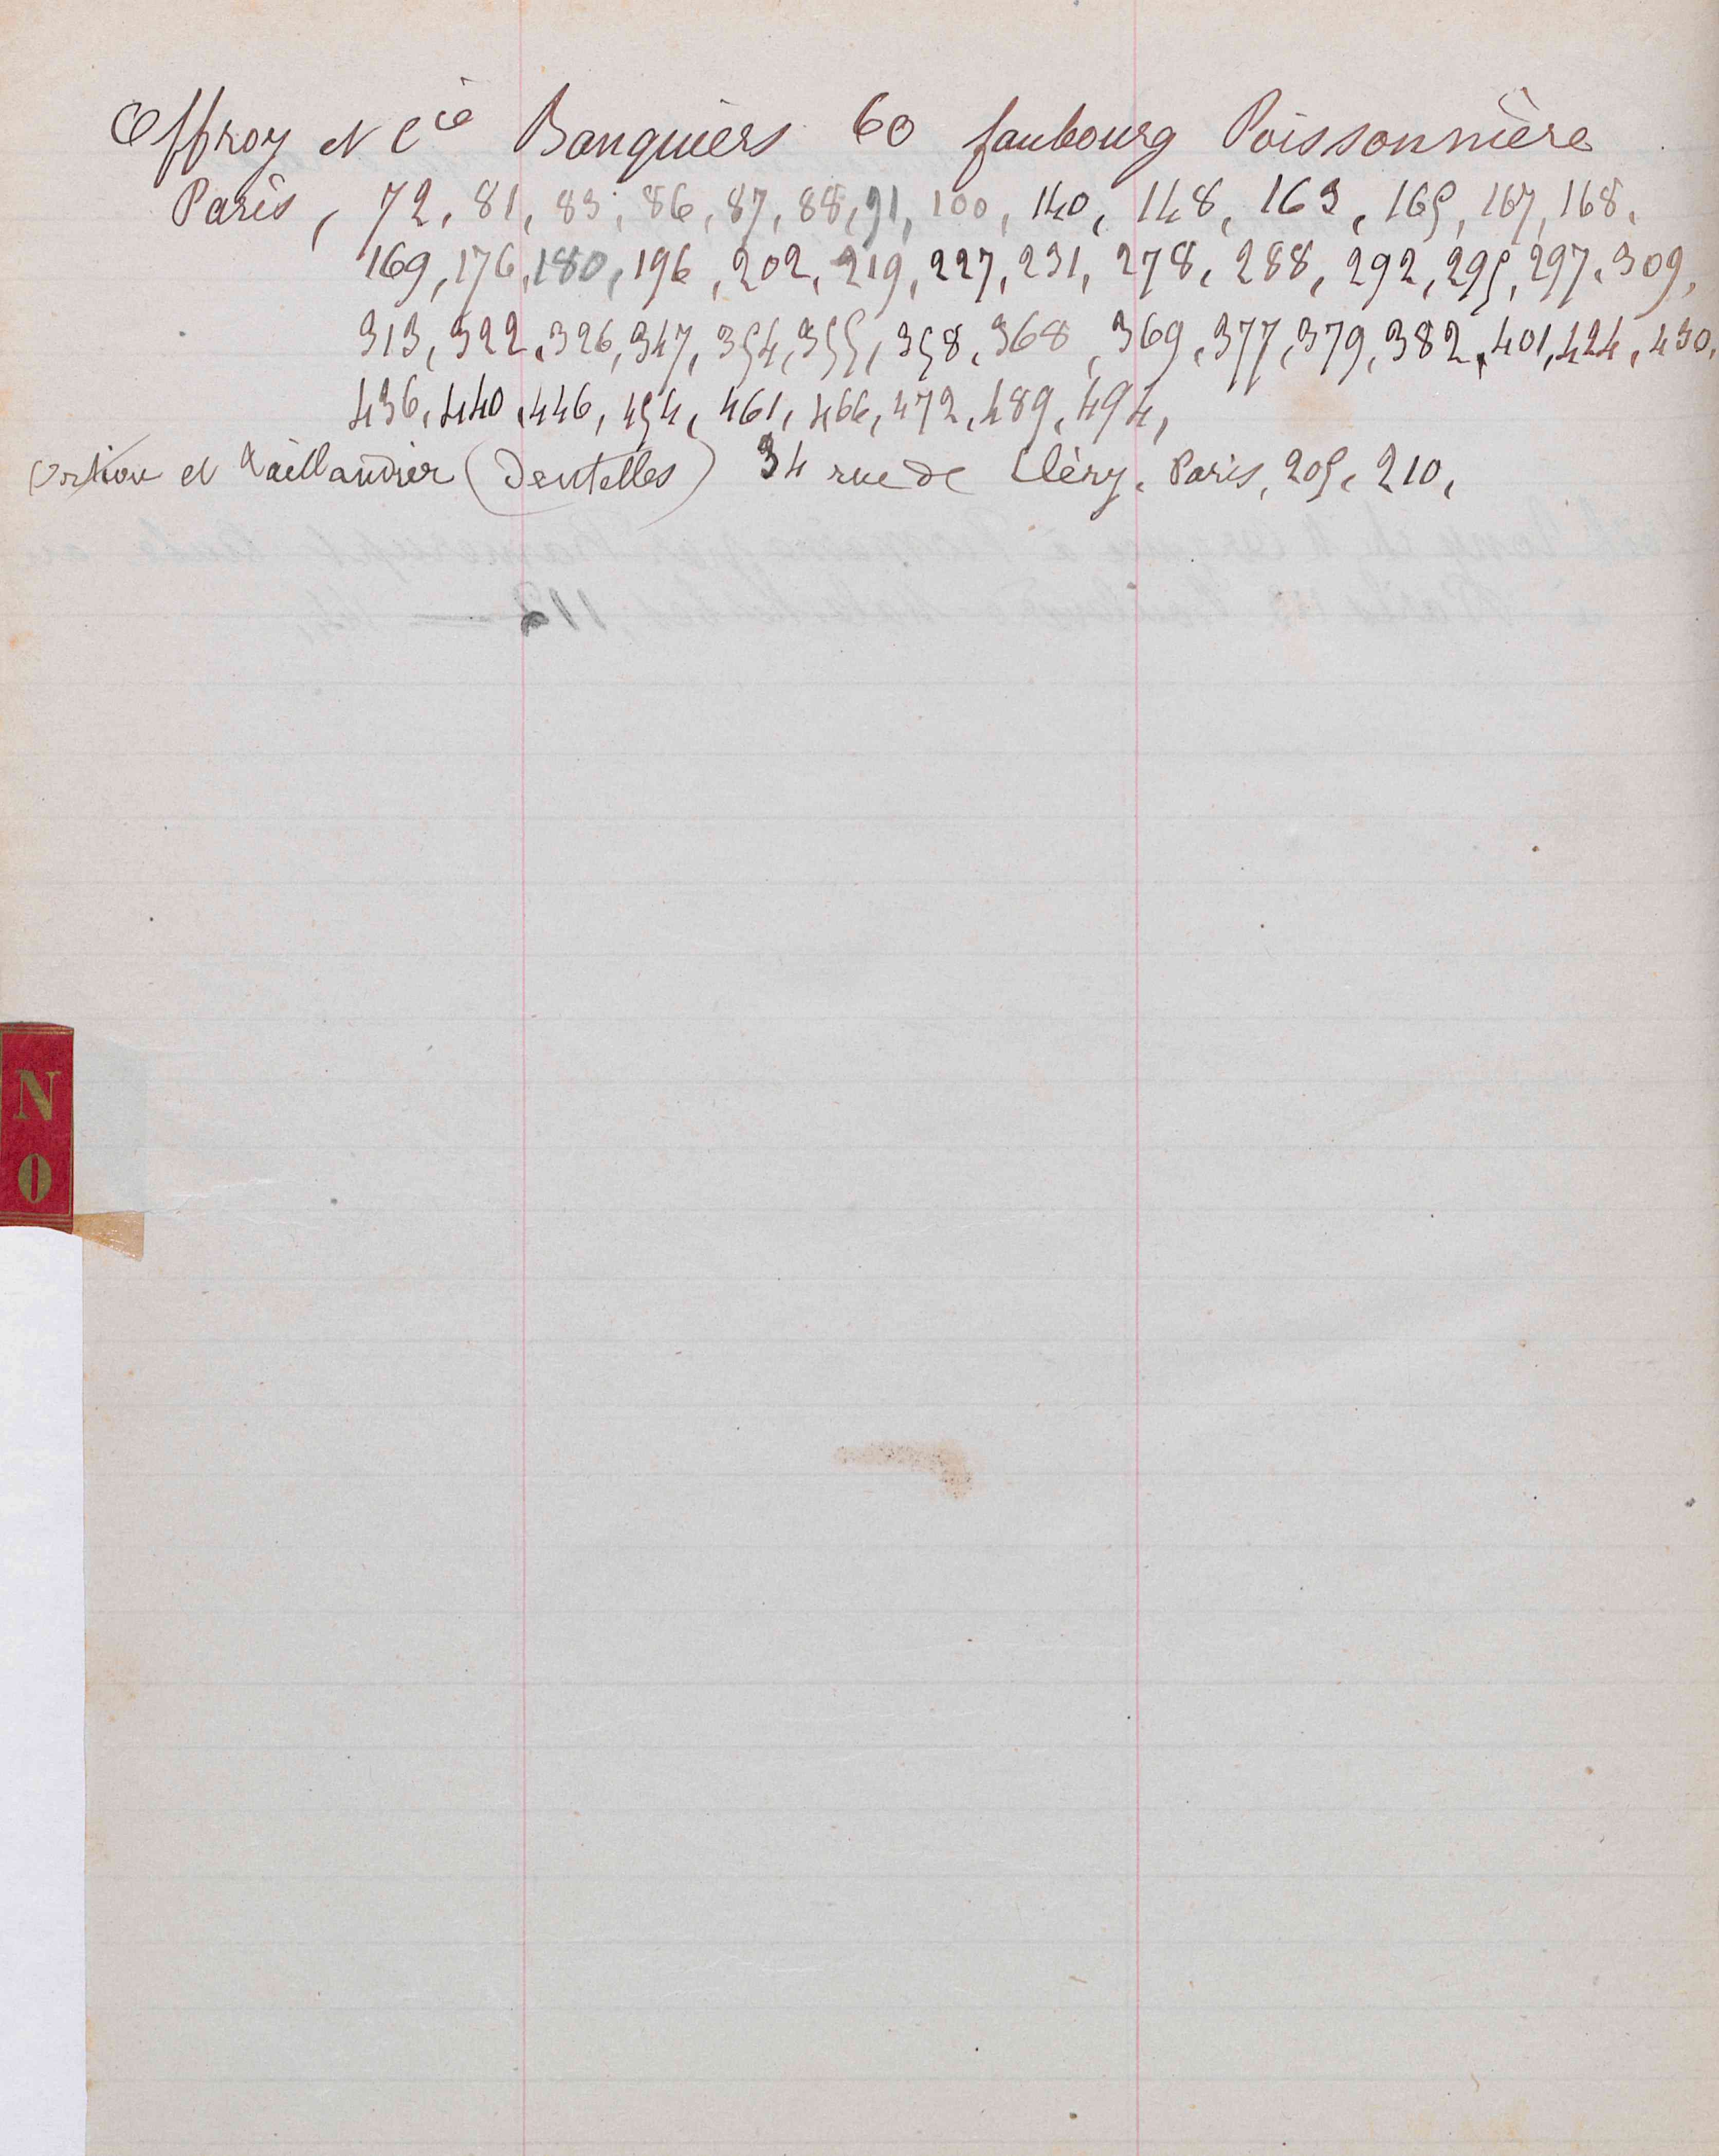 Offroy et Cie Banquiers 60 faubourg Poissonnière
Paris, 72, 81, 83, 86, 87, 88, 91, 100, 140, 148, 163, 165, 167, 168,
169, 176, 180, 196, 202, 219, 227, 231, 278, 288, 292, 295, 297, 309,
313, 322, 326, 347, 354, 355, 358, 368, 369, 377, 379, 382, 401, 424, 430,
436, 440, 446, 454, 461, 466, 472, 489, 494,
et Taillandier (Dentelles) 34 rue de Cléry. Paris, 205, 210,
N
O